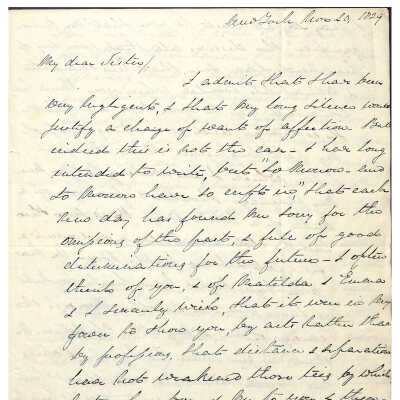 New York Nov 20, 1829
My dear Sister/
I admit that I have been
very negligent, & that my long silence would
justify a charge of want of affection But
indeed this is not the case - I have long
intended to write, but "to Morrow and
to Morrow have so crept in", that each
New day has found me sorry for the
omissions of the past, & full of good
determinations for the future - I often
think of you, & of Matilda & Emma
& I sincerely wish, that it were in my
power to show you, by acts rather than
by professions, that distance & separation
have not weakened those ties by which